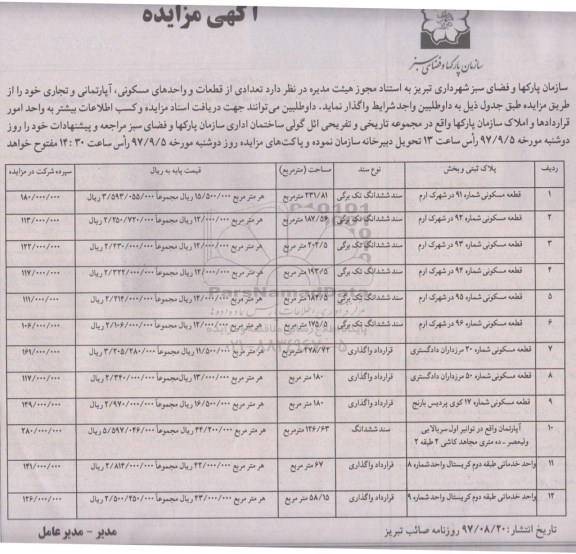 آگهی مزایده
سازمان پارکها و فضای سبز
سازمان پارکها و فضای سبز شهرداری تبریز به استناد مجوز هیئت مدیره در نظر دارد تعدادی از قطعات و واحدهای مسکونی، آپارتمانی و تجاری خود را از
طریق مزایده طبق جدول ذیل به داوطلبین واجد شرایط واگذار نماید. داوطلبین می‌توانند جهت دریافت اسناد مزایده و کسب اطلاعات بیشتر به واحد امور
قراردادها و املاک سازمان پارکها واقع در مجموعه تاریخی و تفریحی ائل گولی ساختمان اداری سازمان پارکها و فضای سبز مراجعه و پیشنهادات خود را روز
دوشنبه مورخه ۹۷/۹/۵ رأس ساعت ۱۳ تحویل دبیرخانه سازمان نموده و پاکت‌های مزایده روز دوشنبه مورخه ۹۷/۹/۵ رأس ساعت ۱۴:۳۰ مفتوح خواهد
ردیف پلاک ثبتی و بخش نوع سند مساحت (مترمربع) قیمت پایه به ریال سپرده شرکت در مزایده
۱ قطعه مسکونی شماره ۹۱ در شهرک ارم سند ششدانگ تک برگی ۲۳۱/۸۱ مترمربع هر متر مربع ۱۵/۵۰۰/۰۰۰ ریال مجموعاً ۳/۵۹۳/۰۵۵/۰۰۰ ریال ۱۸۰/۰۰۰/۰۰۰
۲ قطعه مسکونی شماره ۹۲ در شهرک ارم سند ششدانگ تک برگی ۱۸۷/۵۶ مترمربع هر متر مربع ۱۲/۰۰۰/۰۰۰ ریال مجموعاً ۲/۲۵۰/۷۲۰/۰۰۰ ریال ۱۱۳/۰۰۰/۰۰۰
۳ قطعه مسکونی شماره ۹۳ در شهرک ارم سند ششدانگ تک برگی ۲۰۲/۵ مترمربع هر متر مربع ۱۲/۰۰۰/۰۰۰ ریال مجموعاً ۲/۴۳۰/۰۰۰/۰۰۰ ریال ۱۲۲/۰۰۰/۰۰۰
۴ قطعه مسکونی شماره ۹۴ در شهرک ارم سند ششدانگ تک برگی ۱۹۳/۵ مترمربع هر متر مربع ۱۲/۰۰۰/۰۰۰ ریال مجموعاً ۲/۳۲۲/۰۰۰/۰۰۰ ریال ۱۱۷/۰۰۰/۰۰۰
۵ قطعه مسکونی شماره ۹۵ در شهرک ارم سند ششدانگ تک برگی ۱۸۴/۵ مترمربع هر متر مربع ۱۲/۰۰۰/۰۰۰ ریال مجموعاً ۲/۲۱۴/۰۰۰/۰۰۰ ریال ۱۱۱/۰۰۰/۰۰۰
۶ قطعه مسکونی شماره ۹۶ در شهرک ارم سند ششدانگ تک برگی ۱۷۵/۵ مترمربع هر متر مربع ۱۲/۰۰۰/۰۰۰ ریال مجموعاً ۲/۱۰۶/۰۰۰/۰۰۰ ریال ۱۰۶/۰۰۰/۰۰۰
۷ قطعه مسکونی شماره ۲۰ مرزداران دادگستری قرارداد واگذاری ۲۷۸/۷۲ مترمربع هر متر مربع ۱۱/۵۰۰/۰۰۰ ریال مجموعاً ۳/۲۰۵/۲۸۰/۰۰۰ ریال ۱۶۱/۰۰۰/۰۰۰
۸ قطعه مسکونی شماره ۵۰ مرزداران دادگستری قرارداد واگذاری ۱۸۰ متر مربع هر متر مربع ۱۳/۰۰۰/۰۰۰ ریال مجموعاً ۲/۳۴۰/۰۰۰/۰۰۰ ریال ۱۱۷/۰۰۰/۰۰۰
۹ قطعه مسکونی شماره ۱۷ کوی پردیس بارنج قرارداد واگذاری ۱۸۰ متر مربع هر متر مربع ۱۶/۵۰۰/۰۰۰ ریال مجموعاً ۲/۹۷۰/۰۰۰/۰۰۰ ریال ۱۴۹/۰۰۰/۰۰۰
۱۰ آپارتمان واقع در توانیر اول سربالایی ولیعصر - ده متری مجاهد کاشی ۲ طبقه ۲ سند ششدانگ ۱۲۶/۶۳ مترمربع هر متر مربع ۴۴/۲۰۰/۰۰۰ ریال مجموعاً ۵/۵۹۷/۰۴۶/۰۰۰ ریال ۲۸۰/۰۰۰/۰۰۰
۱۱ واحد خدماتی طبقه دوم کریستال واحد شماره ۸ قرارداد واگذاری ۶۷ متر مربع هر متر مربع ۴۲/۰۰۰/۰۰۰ ریال مجموعاً ۲/۸۱۴/۰۰۰/۰۰۰ ریال ۱۴۱/۰۰۰/۰۰۰
۱۲ واحد خدماتی طبقه دوم کریستال واحد شماره ۹ قرارداد واگذاری ۵۸/۱۵ متر مربع هر متر مربع ۴۳/۰۰۰/۰۰۰ ریال مجموعاً ۲/۵۰۰/۴۵۰/۰۰۰ ریال ۱۲۶/۰۰۰/۰۰۰
ParsNamadData
تاریخ انتشار: ۹۷/۰۸/۲۰ روزنامه صائب تبریز
مدیر - مدیر عامل